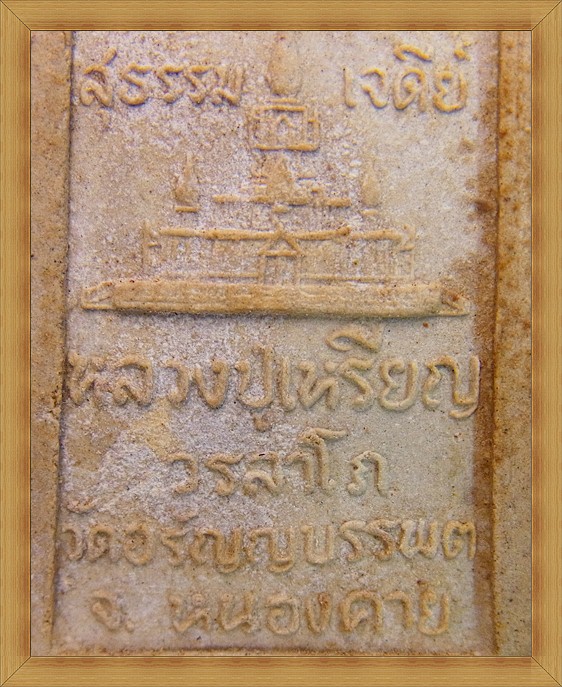 สุธรรม เจดีย์
หลวงปู่เหรียญ
วรลาโภ
วัดอรัญญบรรพต
จ. หนองคาย